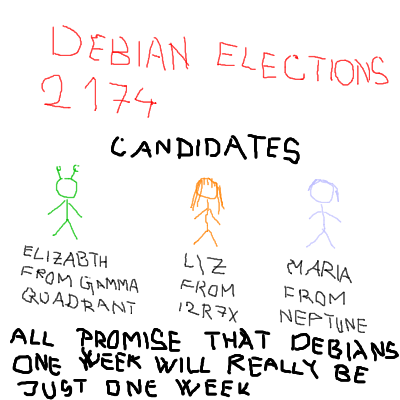 DEBIAN ELECTIONS
2174
CANDIDATES
ELIZABTH
FROM GAMMA
QUADRANT
LIZ
FROM
12R7X
MARIA
FROM
NEPTUNE
ALL PROMISE THAT DEBIANS
ONE WEEK WILL REALLY BE
JUST ONE WEEK